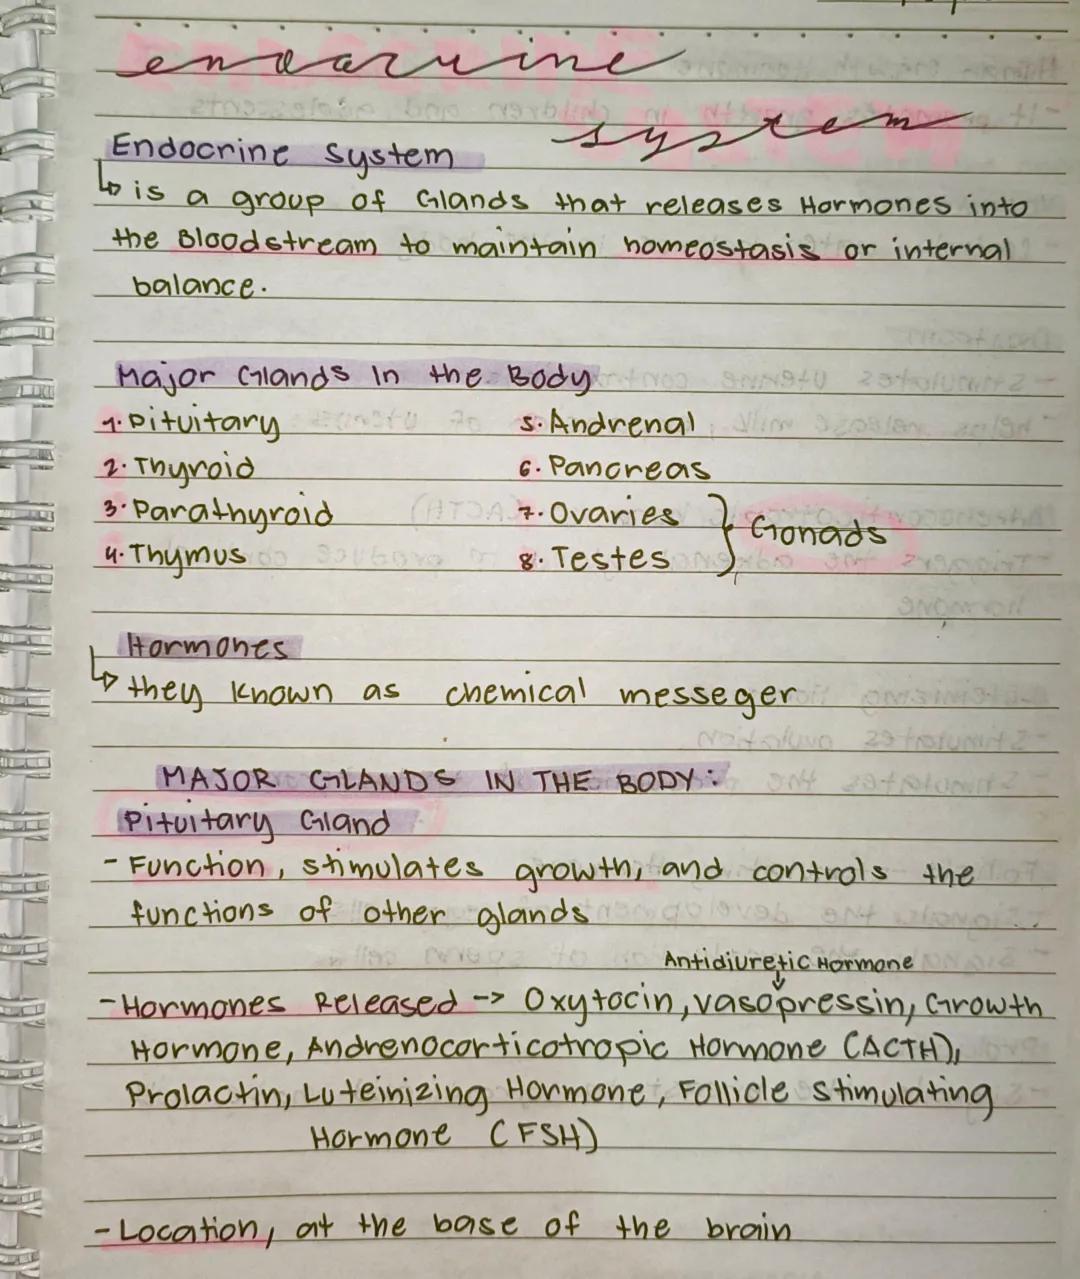 endocrine
system
Endocrine System
↳ is a group of Glands that releases Hormones into
the Bloodstream to maintain homeostasis or internal
balance.
Major Glands In the Body
1. Pituitary
2. Thyroid
3. Parathyroid
4. Thymus
5. Andrenal
6. Pancreas
7. Ovaries
8. Testes
} Gonads
Hormones
↳ they known as chemical messeger
MAJOR GLANDS IN THE BODY:
Pituitary Gland
- Function, stimulates growth, and controls the
functions of other glands
Antidiuretic Hormone
- Hormones Released -> Oxytocin, vasopressin, Growth
Hormone, Andrenocorticotropic Hormone (ACTH),
Prolactin, Luteinizing Hormone, Follicle Stimulating
Hormone (FSH)
- Location, at the base of the brain